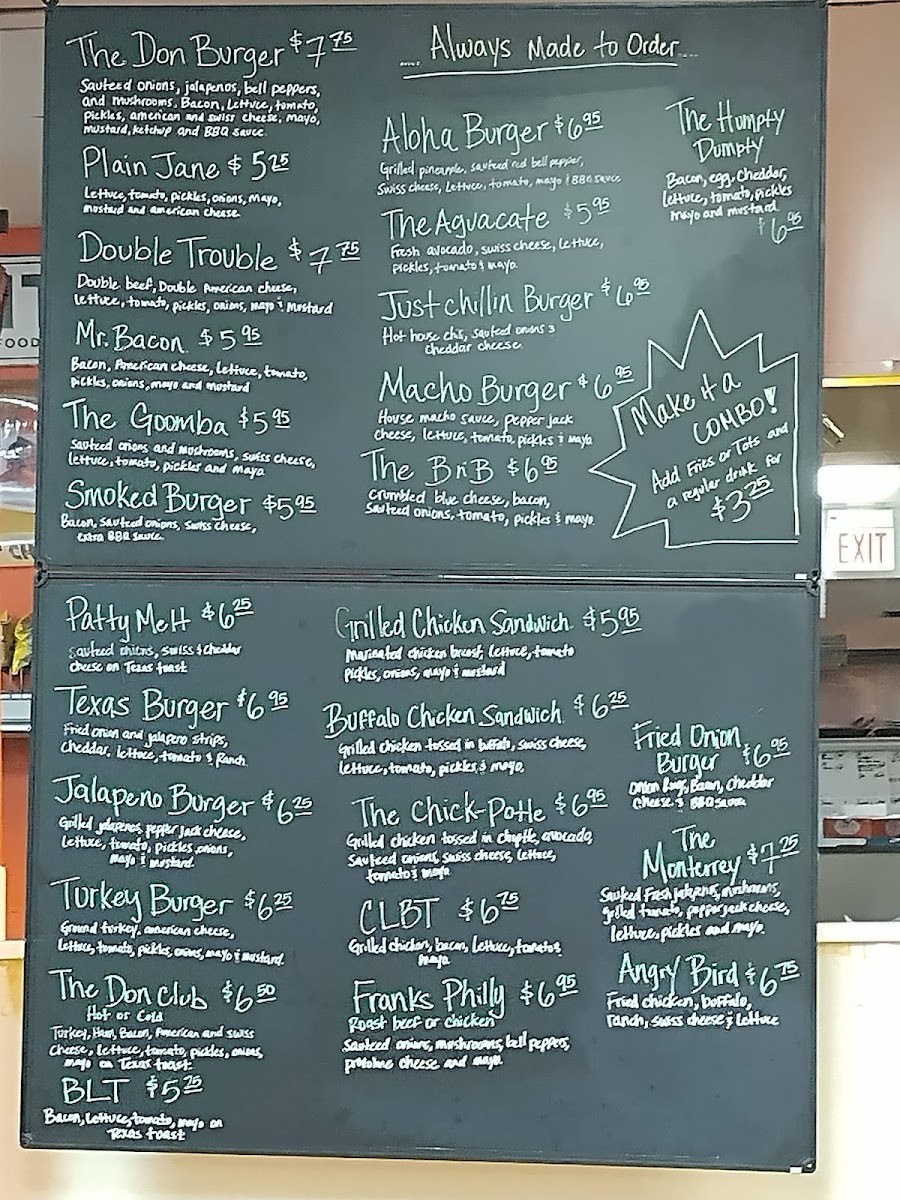 The Don Burger $7.75
Sauteed onions, jalapenos, bell peppers,
and mushrooms. Bacon, Lettuce, tomato,
pickles, american and swiss cheese, mayo,
mustard, ketchup and BBQ sauce
Plain Jane $5.25
Lettuce, tomato, pickles, onions, mayo,
mustard and american cheese
Double Trouble $7.75
Double beef, Double American cheese,
lettuce, tomato, pickles, onions, mayo & mustard
Mr. Bacon $5.95
Bacon, American cheese, lettuce, tomato,
pickles, onions, mayo and mustard
The Goomba $5.95
Sauteed onions and mushrooms, swiss cheese,
lettuce, tomato, pickles and mayo
Smoked Burger $5.95
Bacon, sauteed onions, swiss cheese,
extra BBQ sauce
.... Always Made to Order...
Aloha Burger $6.95
Grilled pineapple, sauteed red bell pepper,
Swiss cheese, lettuce, tomato, mayo & BBQ sauce
The Aguacate $5.95
Fresh avocado, swiss cheese, lettuce,
pickles, tomato & mayo
Just chillin Burger $6.95
Hot house chili, sauteed onions &
cheddar cheese
Macho Burger $6.95
House macho sauce, pepper jack
cheese, lettuce, tomato, pickles & mayo
The BnB $6.95
Crumbled blue cheese, bacon,
Sauteed onions, tomato, pickles & mayo
The Humpty
Dumpty
Bacon, egg, cheddar,
lettuce, tomato, pickles
mayo and mustard
$6.95
Make it a
COMBO!
Add Fries or Tots and
a regular drink for
$3.25
FOOD
EXIT
Patty Melt $6.25
sauteed onions, swiss & cheddar
cheese on Texas toast
Texas Burger $6.95
Fried onion and jalapeno strips,
cheddar, lettuce, tomato & Ranch
Jalapeno Burger $6.25
Grilled jalapenos, pepper jack cheese,
lettuce, tomato, pickles, onions,
mayo & mustard
Turkey Burger $6.25
Ground turkey, american cheese,
lettuce, tomato, pickles, onions, mayo & mustard
The Don Club $6.50
Hot or Cold
Turkey, Ham, Bacon, American and swiss
cheese, lettuce, tomato, pickles, onions,
mayo on Texas toast
BLT $5.25
Bacon, lettuce, tomato, mayo on
Texas toast
Grilled Chicken Sandwich $5.95
Marinated chicken breast, lettuce, tomato
pickles, onions, mayo & mustard
Buffalo Chicken Sandwich $6.25
Grilled chicken tossed in buffalo, swiss cheese,
lettuce, tomato, pickles & mayo
The Chick-Potle $6.95
Grilled chicken tossed in chipotle, avocado,
Sauteed onions, swiss cheese, lettuce,
tomato & mayo
CLBT $6.75
Grilled chicken, bacon, lettuce, tomato &
mayo
Franks Philly $6.95
Roast beef or chicken
Sauteed onions, mushrooms, bell peppers,
provolone cheese and mayo
Fried Onion
Burger $6.95
Onion Rings, Bacon, Cheddar
cheese & BBQ sauce
The
Monterrey $7.25
Sauteed Fresh jalapenos, mushrooms,
grilled tomato, pepper jack cheese,
lettuce, pickles and mayo
Angry Bird $6.75
Fried chicken, buffalo,
ranch, swiss cheese & lettuce